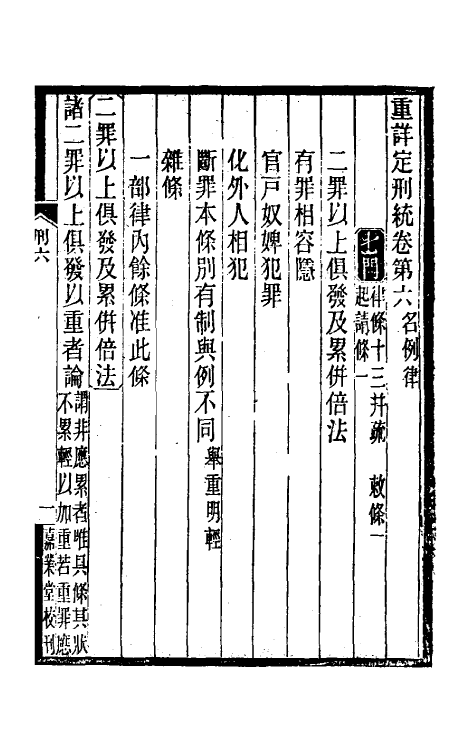 重詳定刑統卷第六名例律
七門
律條十三并疏　敕條一
起請條一
二罪以上俱發及累併倍法
有罪相容隱
官戶奴婢犯罪
化外人相犯
斷罪本條別有制與例不同舉重明輕
雜條
一部律內餘條准此條
二罪以上俱發及累併倍法
諸二罪以上俱發以重者論
謂非應累者唯具條其狀
不累輕以加重若重罪應
刑六
一
嘉業堂校刊